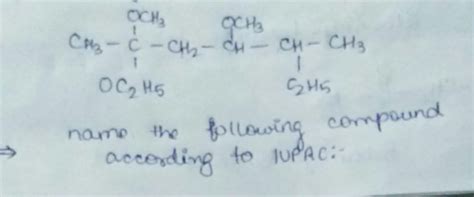 OCH3 OCH3
CH3 - C - CH2 - CH - CH - CH3
OC2H5 C2H5
name the following compound
⇒ according to IUPAC:-